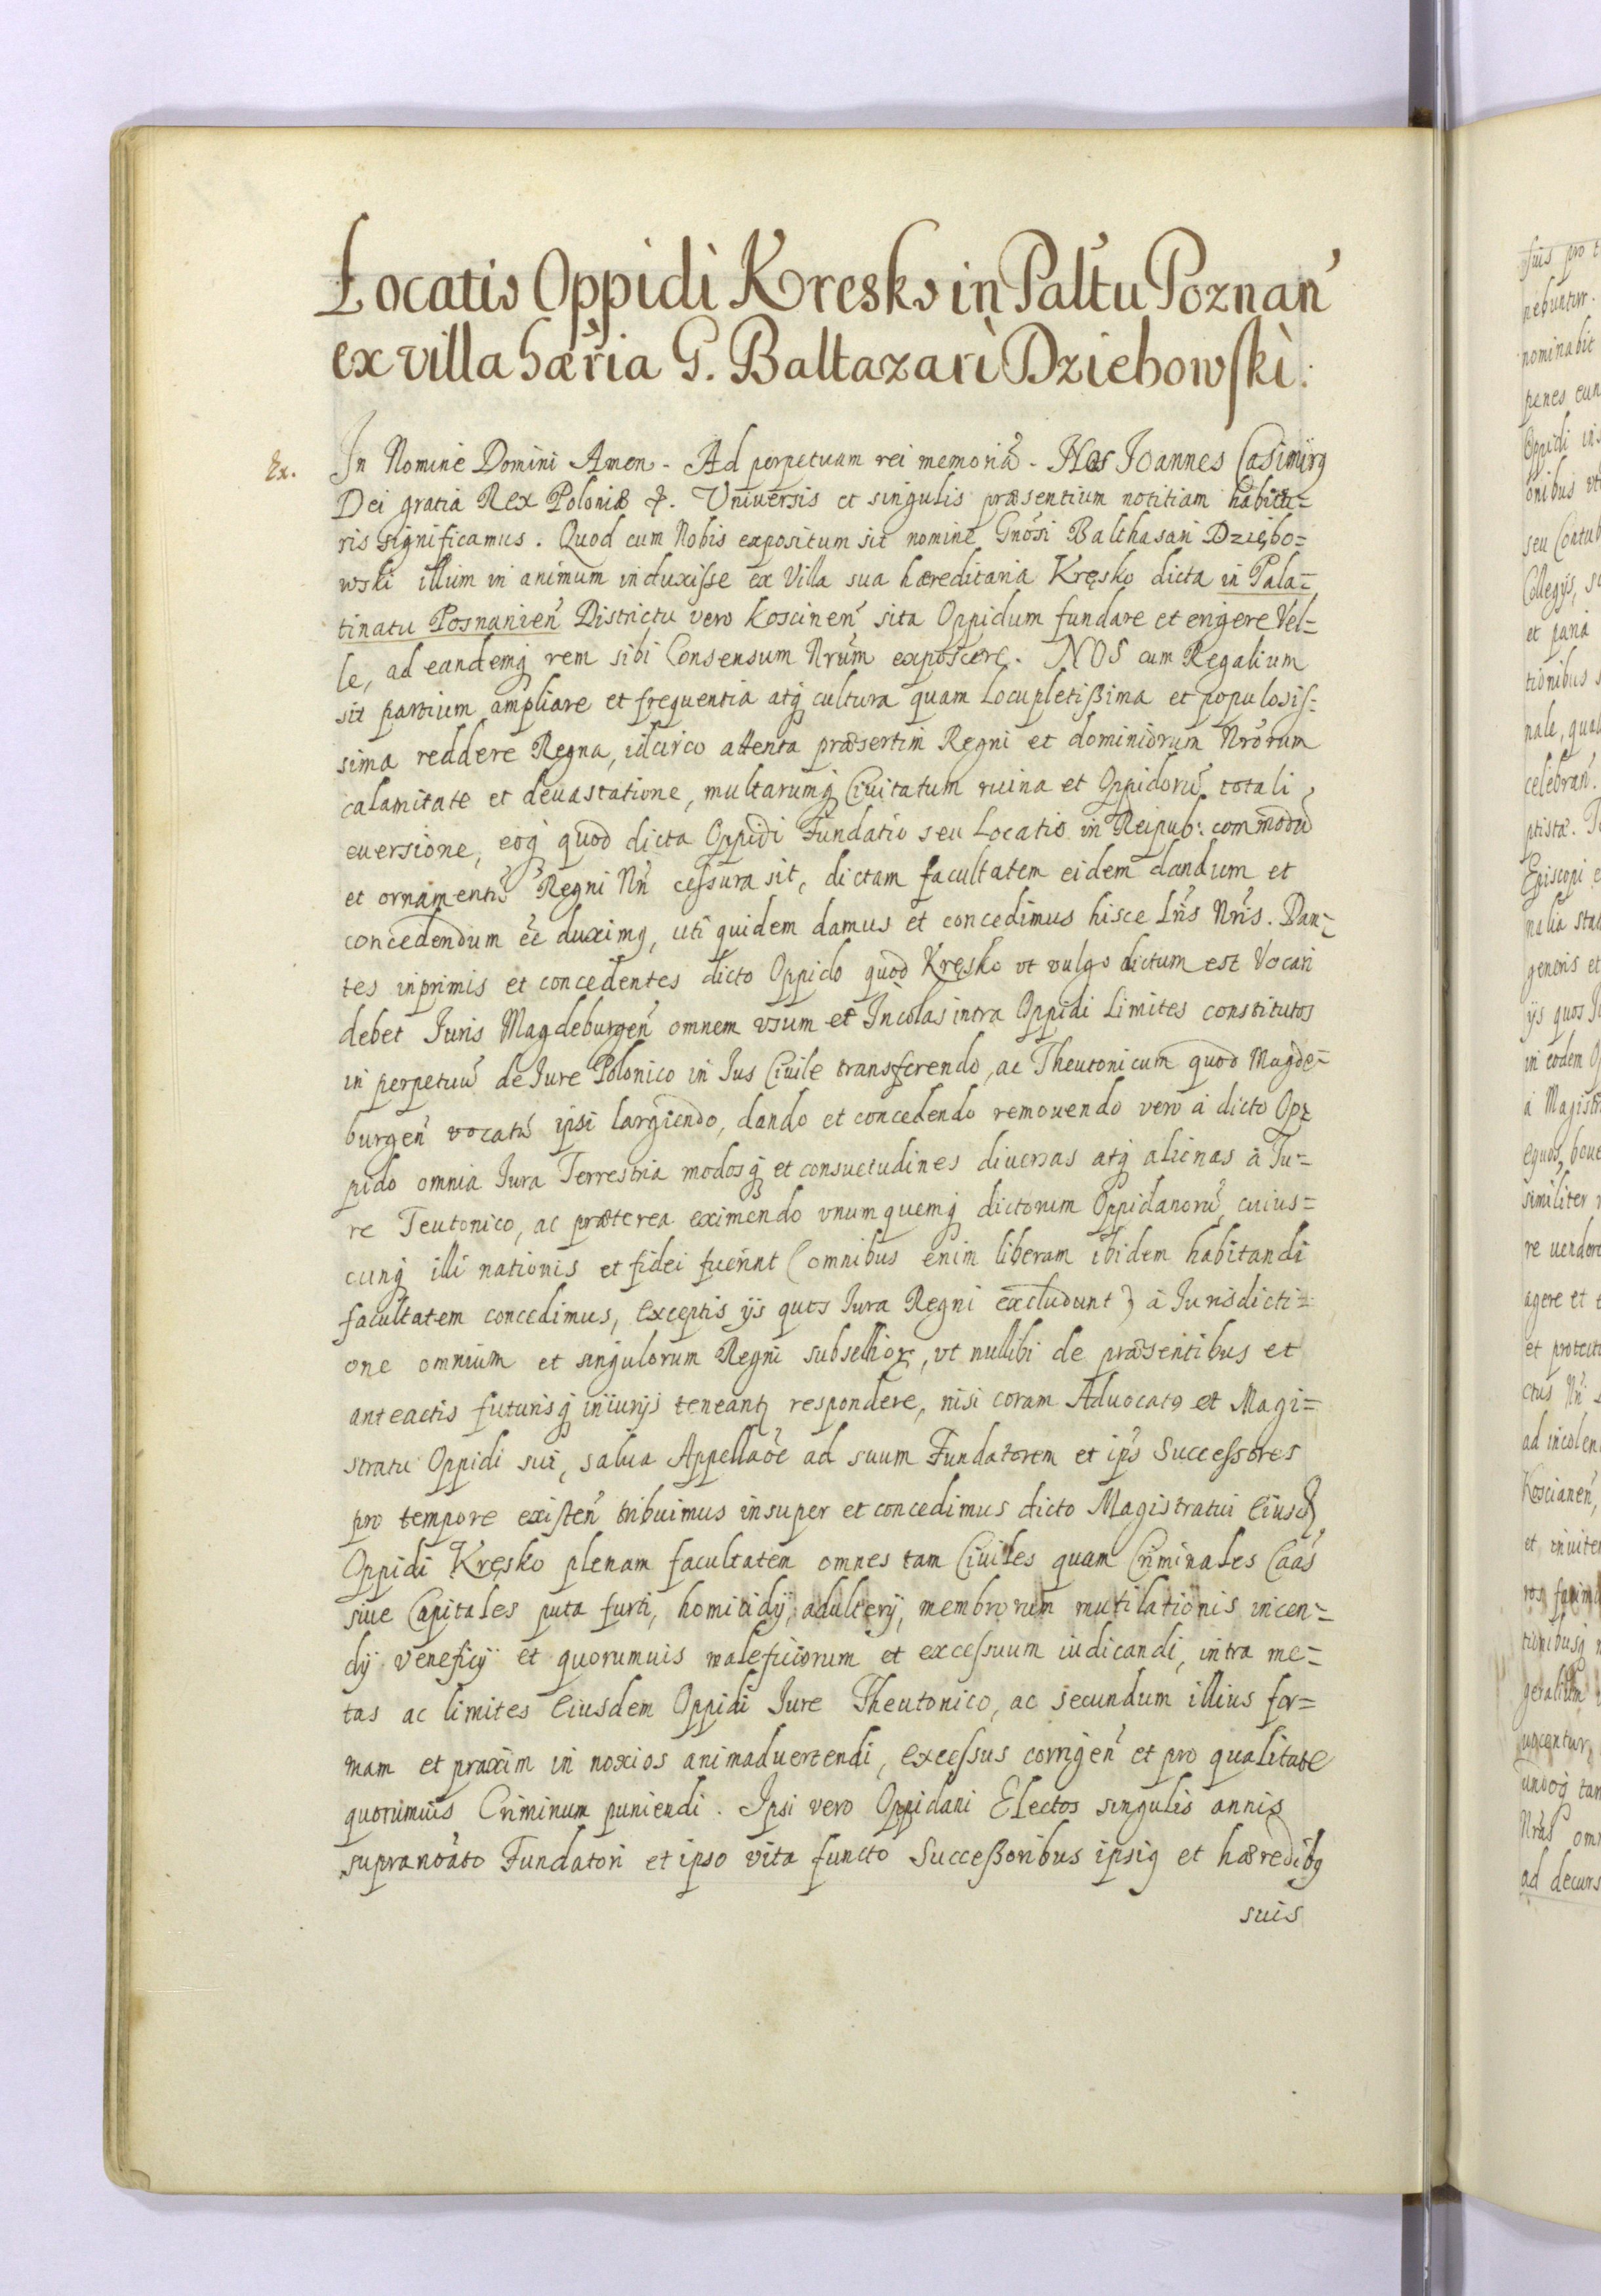 Locatio Oppidi Kresko in Paltu Poznan̄
ex villa hær̃ia G. Baltazari Dziebowski.
Ex. In Nomine Domini Amen. Ad perpetuam rei memoriã. Nos Ioannes Casimirꝯ
Dei gratia Rex Poloniæ &. Vniuersis et singulis præsentium notitiam habitu=
ris significamus. Quod cum Nobis expositum sit nomine Gnõsi Balthasari Dziębo=
wski illum in animum induxisse ex Villa sua hæreditaria Kręsko dicta in Pala=
tinatu Posnanien̄ Districtu vero Koscinen̄ sita Oppidum fundare et erigere Vel=
le, ad eandemq́ rem sibi Consensum Nrũm exposcere. NOS cum Regalium
sit partium ampliare et frequentia atq́ cultura quam Locupletißima et populosis=
sima reddere Regna, idcirco attenta præsertim Regni et dominiorum Nrõrum
calamitate et deuastatione, multarumq́ Ciuitatum ruina et Oppidorũ totali
euersione, eoq́ quod dicta Oppidi Fundatio seu Locatio in Reipub: commodũ
et ornamentũ Regni Nr̃i cessura sit, dictam facultatem eidem dandum et
concedendum eẽ duximꝯ, uti quidem damus et concedimus hisce Lr̃is Nr̃is. Dan=
tes inprimis et concedentes dicto Oppido quod Kręsko vt vulgo dictum est Vocari
debet Iuris Magdeburgen̄ omnem vsum et Incolas intra Oppidi Limites constitutos
in perpetuũ de Iure Polonico in Ius Ciuile transferendo, ac Theutonicum quod Magde=
burgen̄ vocatũ ipsi largiendo, dando et concedendo remouendo vero à dicto Op=
pido omnia Iura Terrestria modosq́ et consuetudines diuersas atq́ alienas à Iu=
re Teutonico, ac præterea eximendo vnumquemq́ dictorum Oppidanorũ, cuius=
cunq́ illi nationis et fidei fuerint (omnibus enim liberam ibidem habitandi
facultatem concedimus, exceptis ijs quos Iura Regni excludunt) à Iurisdicti=
one omnium et singulorum Regni subselliorꝝ, vt nullibi de præsentibus et
anteactis futurisq́ iniurijs teneantꝛ respondere, nisi coram Aduocato et Magi=
stratu Oppidi sui, salua Appellaõe ad suum Fundatorem et ip̃s Successores
pro tempore existen̄ tribuimus insuper et concedimus dicto Magistratui eiusd
Oppidi Kręsko plenam facultatem omnes tam Ciuiles quam Criminales Caãs
siue Capitales puta furti, homicidij, adulterij, membrorum mutilationis incen=
dij veneficij et quorumuis maleficiorum et excessuum iudicandi, intra me=
tas ac limites eiusdem Oppidi Iure Theutonico, ac secundum illius for=
mam et praxim in noxios animaduertendi, excessus corrigen̄ et pro qualitate
quorumuis Criminum puniendi. Ipsi vero Oppidani Electos singulis annis
supranoãto Fundatori et ipso vita functo Succeßoribus ipsiꝯ et hæredibꝯ
suis